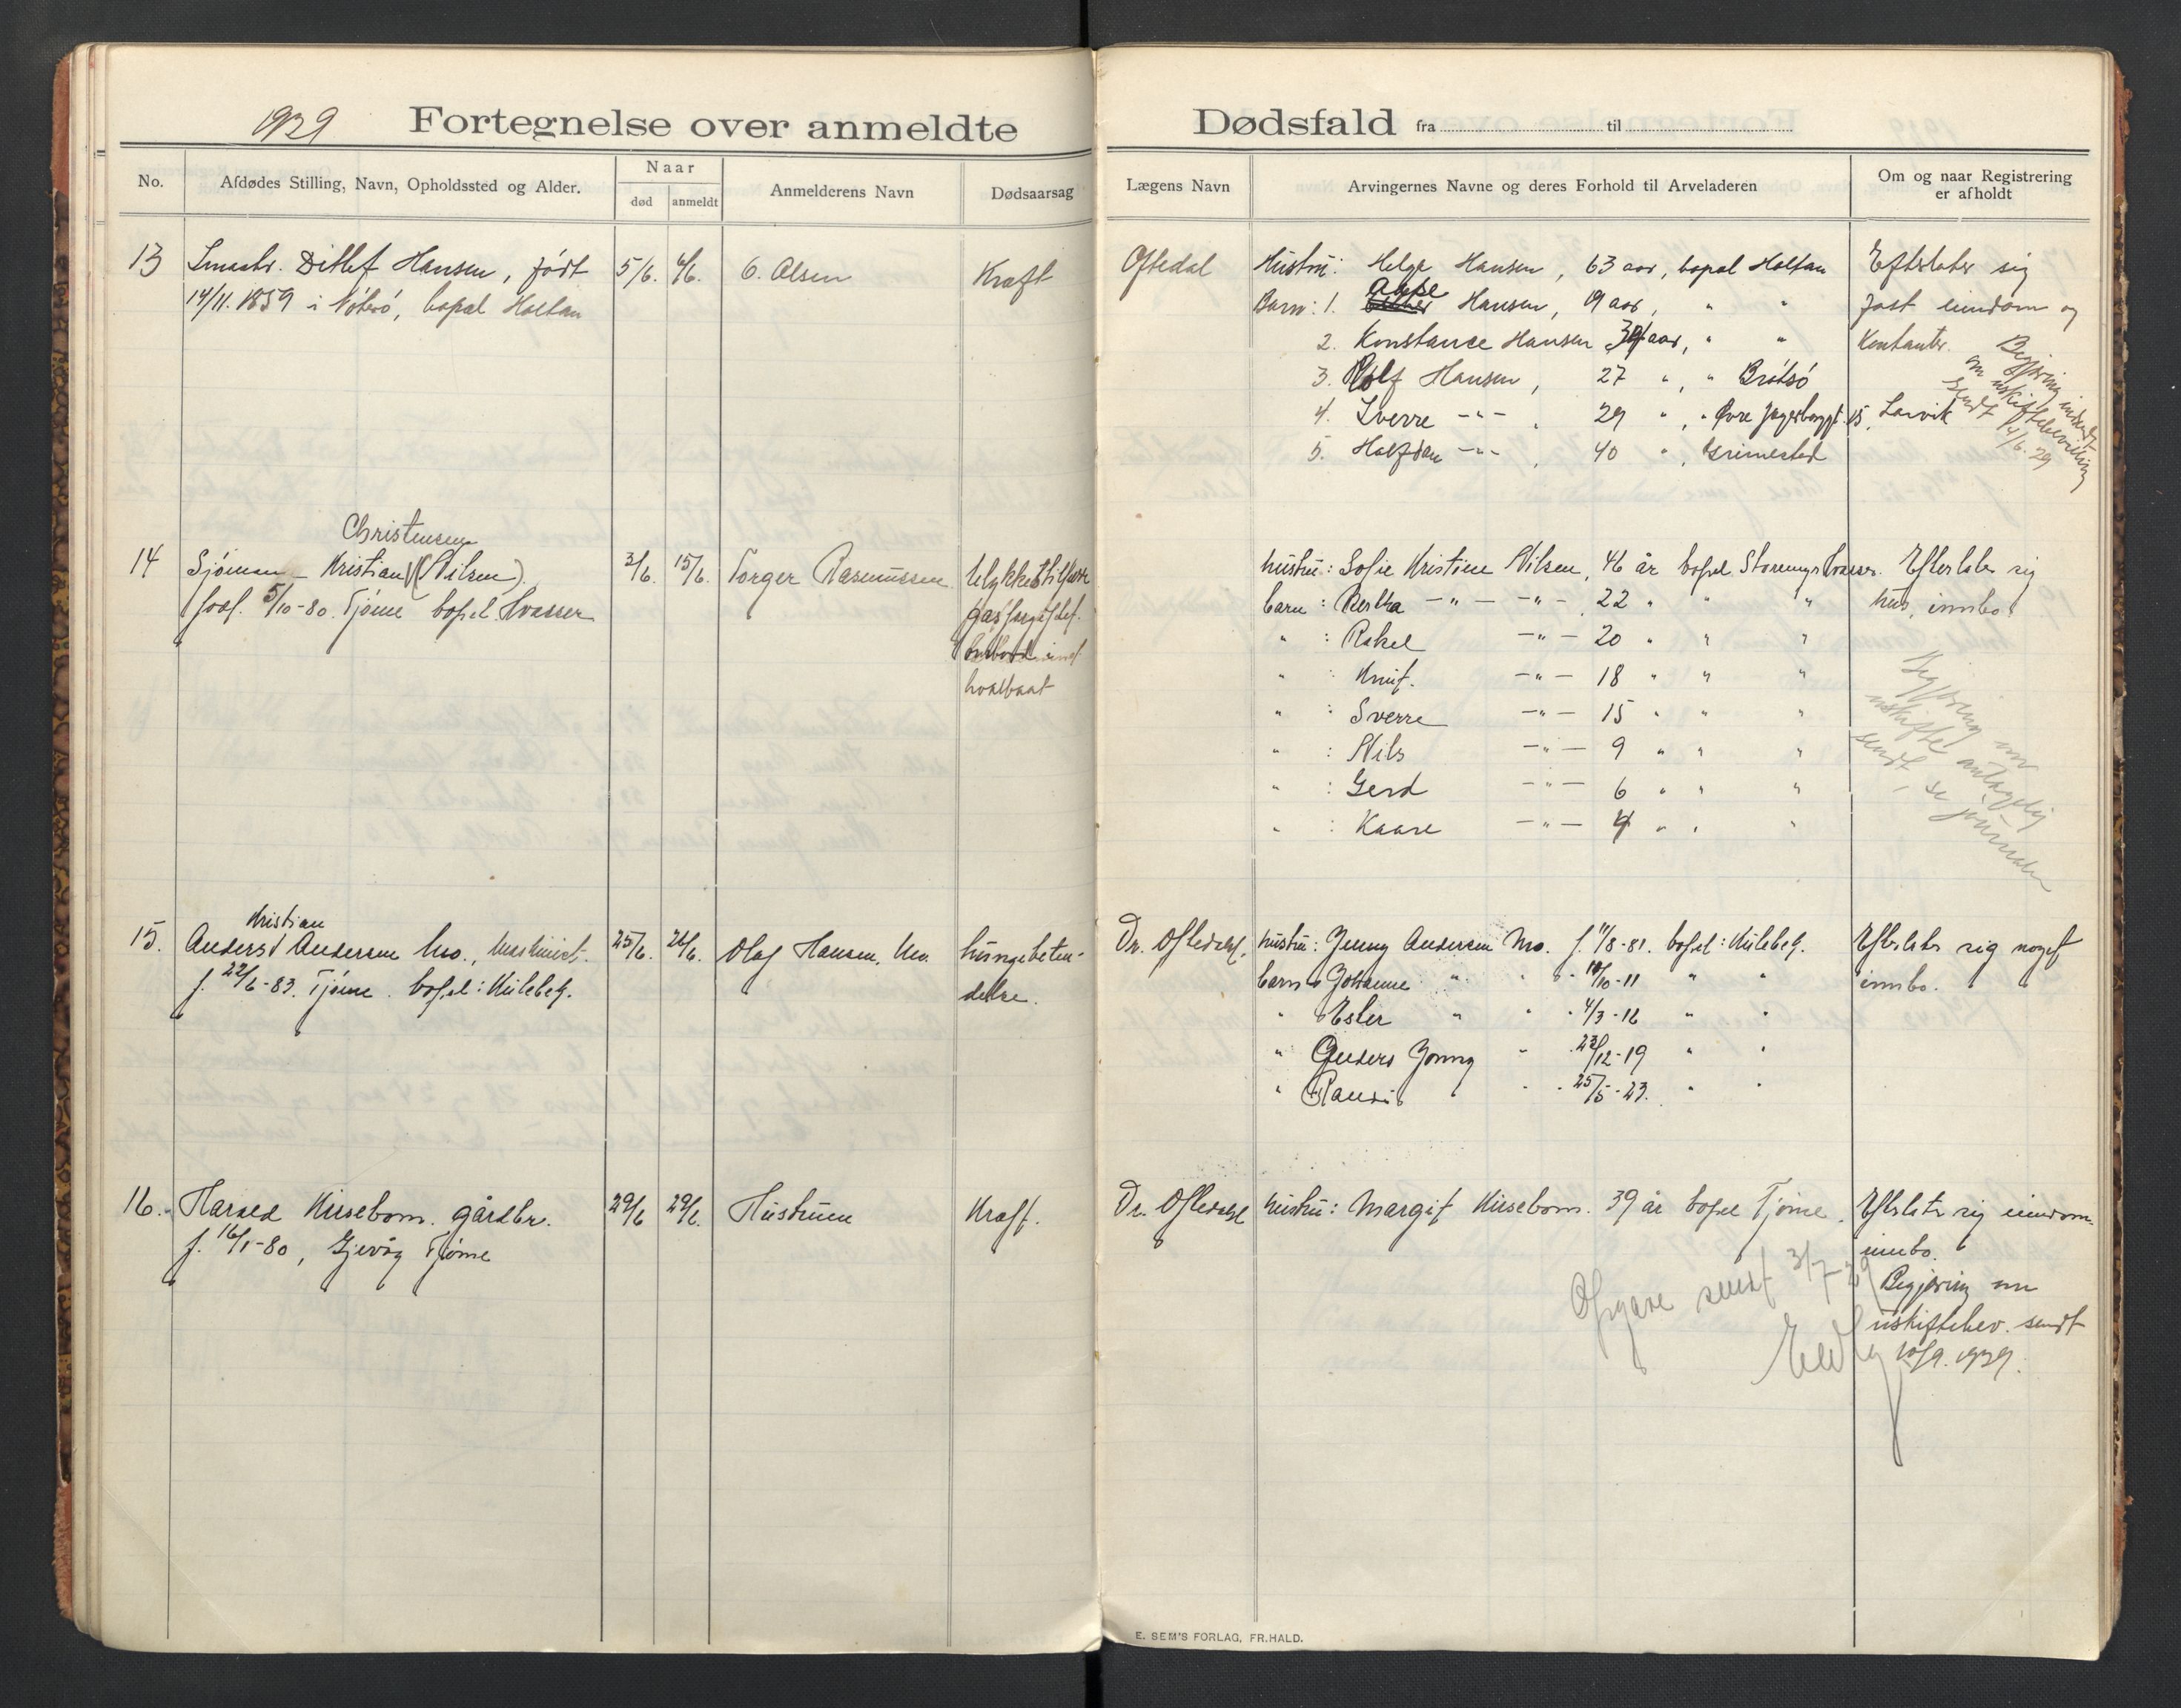 1929 Fortegnelse over anmeldte Dødsfald fra til
No. Afdødes Stilling, Navn, Opholdssted og Alder. Naar død anmeldt Anmelderens Navn Dødsaarsag Lægens Navn Arvingernes Navne og deres Forhold til Arveladeren Om og naar Registrering er afholdt
13 Smaabr. Ditlef Hansen, født 5/6. 6/6. O. Olsen Kræft Oftedal Hustru: Helga Hansen, 63 aar, bopæl Holtan Efterlater sig
14/11. 1859 i Nøterø, bopæl Holtan Barn: 1. Hansen, 19 aar, " " fast eiendom og
2. Konstance Hansen 34 aar, " " kontanter.
3. Rolf Hansen, 27 ", " Brøtsø
4. Sverre -"- , 29 " , " Øvre Jegersborggt. 15, Larvik
5. Halfdan -"- , 40 " , Grimestad
Begjæring indsendt
om uskiftebevilling
Sendt 4/6.29
Christensen
14 Sjømann - Kristian (Nilsen). 3/6. 15/6. Torger Rasmussen Ulykkestilfælde hustru: Sofie Kristine Nilsen, 46 år bopel Hvasser. Efterlater sig
født 5/10-80. Tjøme bopel. Hvasser gasforgiftet. barn: Bertha -"- -"- 22 " " " hus, innbo.
ombord i " : Rakel -"- 20 " " "
hvalbaat " : Knut. -"- 18 " " "
" : Sverre -"- 15 " " "
" : Nils -"- 9 " " "
" : Gerd -"- 6 " " "
" : Kaare -"- 4 " " "
Begjæring om
uskifte antagelig
sendt, se journalen
Kristian
15. Anders Andersen Mo., maskinist. 25/6. 26/6. Olaf Hansen, Mo. lungebeten- Dr. Oftedahl. hustru: Jenny Andersen Mo. f. 11/8-81. bopel: Kulebek. Efterlater sig noget
f. 22/6-83. Tjøme. bopel: Kulebek. delse. barn Johanne " " " 10/10-11 " " innbo.
" Ester " " " 4/3-16 " "
" Anders Jonny " " 23/12-19 " "
" Randi " " 25/5-23. " "
16. Harald Kirsebom. gårdbr. 29/6 29/6. Hustruen Kræft. Dr. Oftedahl hustru: Margit Kirsebom. 39 år bopel Tjøme. Efterlater sig eiendom.
f. 16/1-80, Gjevåg Tjøme innbo.
Opgave sendt 3/7-29
Begjæring om
uskiftebev. sendt
10/9. 1929.
E. SEM'S FORLAG, FR.HALD.